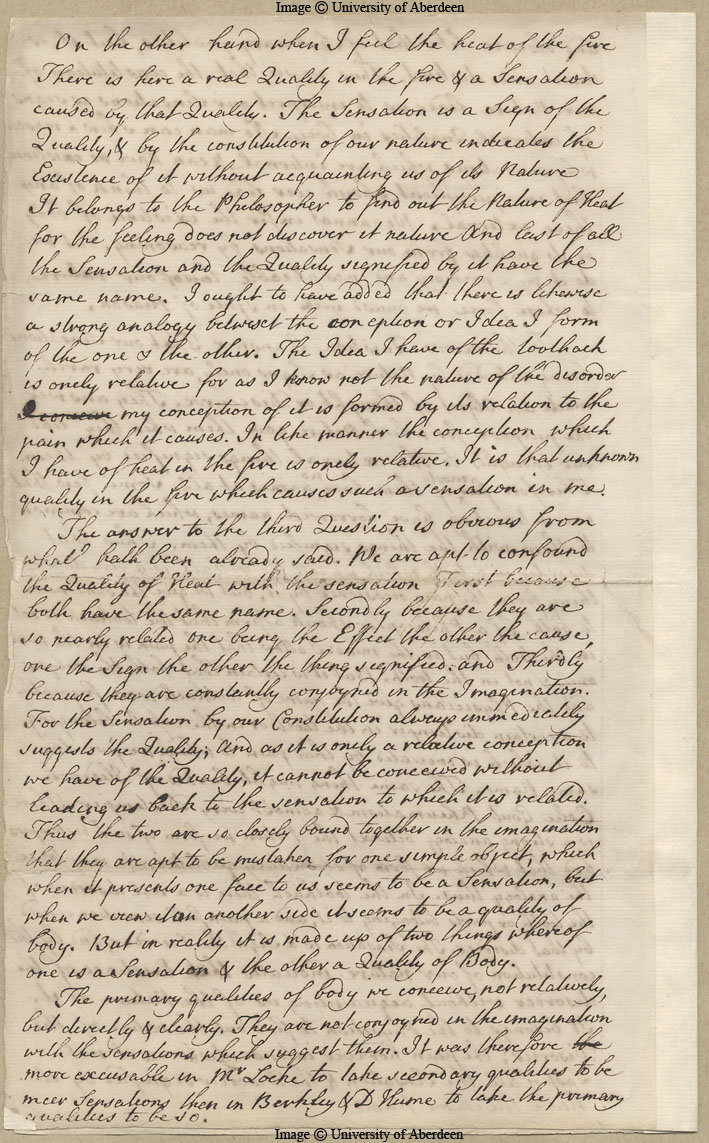 Image © University of Aberdeen
On the other hand when I feel the heat of the fire
There is here a real Quality in the fire & a Sensation
caused by that Quality. The Sensation is a Sign of the
Quality, & by the constitution of our nature indicates the
Existence of it without acquainting us of its Nature
It belongs to the Philosopher to find out the Nature of Heat
for the feeling does not discover it nature And last of all
the Sensation and the Quality signified by it have the
same name. I ought to have added that there is likewise
a strong analogy betwixt the conception or Idea I form
of the one & the other. The Idea I have of the toothach
is onely relative for as I know not the nature of the disorder
I conceive my conception of it is formed by its relation to the
pain which it causes. In like manner the conception which
I have of heat in the fire is onely relative. It is that unknown
quality in the fire which causes such a sensation in me.
The answer to the third Question is obvious from
what hath been already said. We are apt to confound
the Quality of Heat with the sensation First because
both have the same name. Secondly because they are
so nearly related one being the Effect the other the cause,
one the Sign the other the thing signified: and Thirdly
because they are constantly conjoyned in the Imagination.
For the Sensation by our Constitution always immediately
suggests the Quality; And as it is onely a relative conception
we have of the Quality, it cannot be conceived without
leading us back to the sensation to which it is related.
Thus the two are so closely bound together in the imagination
that they are apt to be mistaken for one simple object, which
when it presents one face to us seems to be a Sensation, but
when we view it on another side it seems to be a quality of
body. But in reality it is made up of two things whereof
one is a Sensation & the other a Quality of Body.
The primary qualities of body we conceive, not relatively,
but directly & clearly. They are not conjoyned in the imagination
with the sensations which suggest them. It was therefore the
more excusable in Mr Locke to take secondary qualities to be
meer Sensations then in Berkley & D Hume to take the primary
qualities to be so.
Image © University of Aberdeen